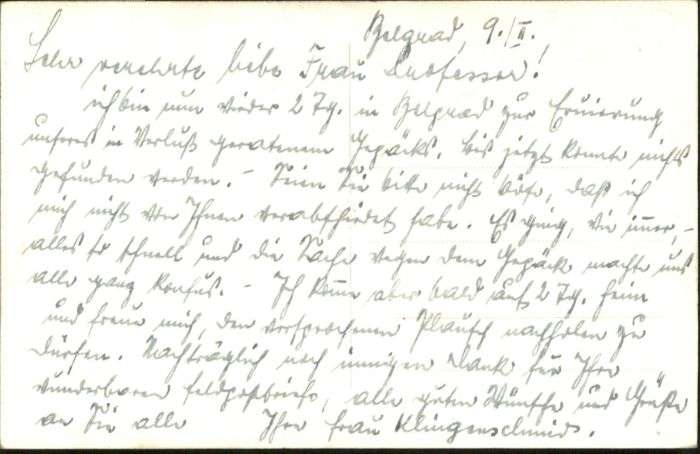 Belgrad, 9./II.,
Sehr verehrte liebe Frau Professor!
ich bin nun wieder 2 Tg. in Belgrad zur Eruierung
unseres in Verlust geratenem Gepäcks. bis jetzt konnte nichts
gefunden werden. – Seien Sie bitte nicht böse, daß ich
mich nicht von Ihnen verabschiedet habe. Es ging, wie immer, –
alles so schnell und die Sache wegen dem Gepäck machte uns
alle ganz konfus. – Ich komme aber bald auf 2 Tg. heim
und freue mich, den versprochenen Plausch nachholen zu
dürfen. Nachträglich noch innigen Dank für Ihre
wunderbaren Feldpostbriefe, alle guten Wünsche und Grüße
an Sie alle Ihre Frau Klingenschmid.